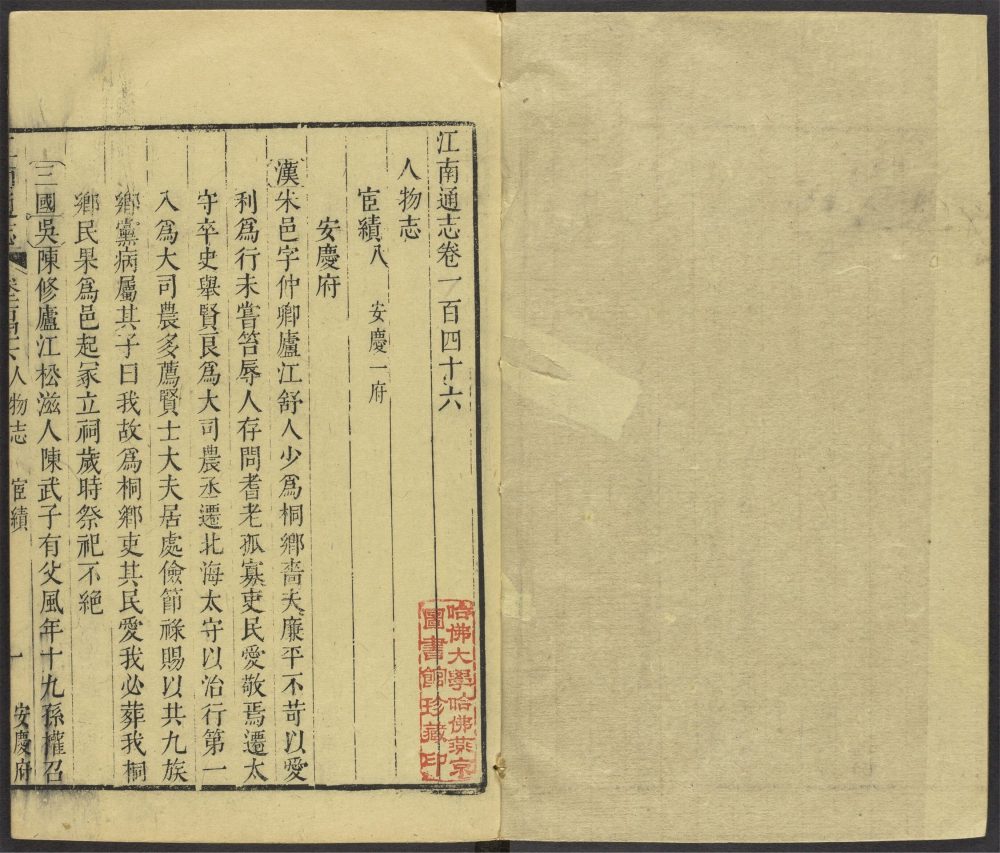 江南通志卷一百四十六
人物志
宦績八 安慶一府
安慶府
漢朱邑字仲卿廬江舒人少爲桐鄉嗇夫廉平不苛以愛
利爲行未嘗笞辱人存問耆老孤寡吏民愛敬焉遷太
守卒史舉賢良爲大司農丞遷北海太守以治行第一
入爲大司農多薦賢士大夫居處儉節祿賜以共九族
鄉黨病屬其子曰我故爲桐鄉吏其民愛我必葬我桐
鄉民果爲邑起冢立祠歲時祭祀不絶
三國吳陳修廬江松滋人陳武子有父風年十九孫權召
江南通志 卷一百四十六 人物志 宦績 一 安慶府
哈佛大學哈佛燕京
圖書館珍藏印